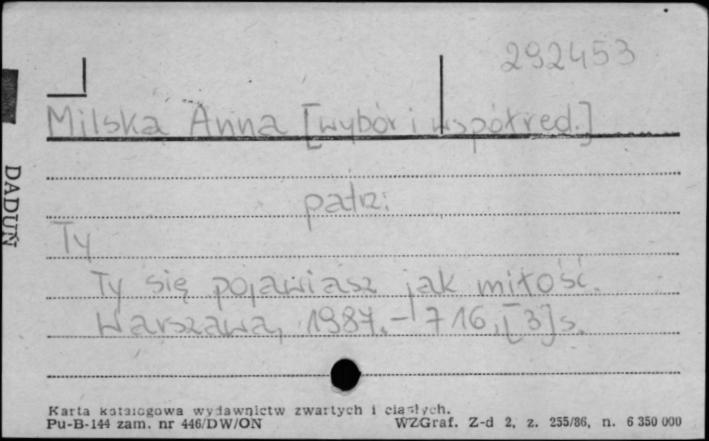 292453
Milska Anna [wybór i współred.]
patrz:
Ty
Ty się pojawiasz jak miłość.
Warszawa, 1987.- 716, [3] s.
DADUŃ
Karta katalogowa wydawnictw zwartych i ciągłych.
Pu-B-144 zam. nr 446/DW/ON WZGraf. Z-d 2, z. 255/86, n. 6 350 000